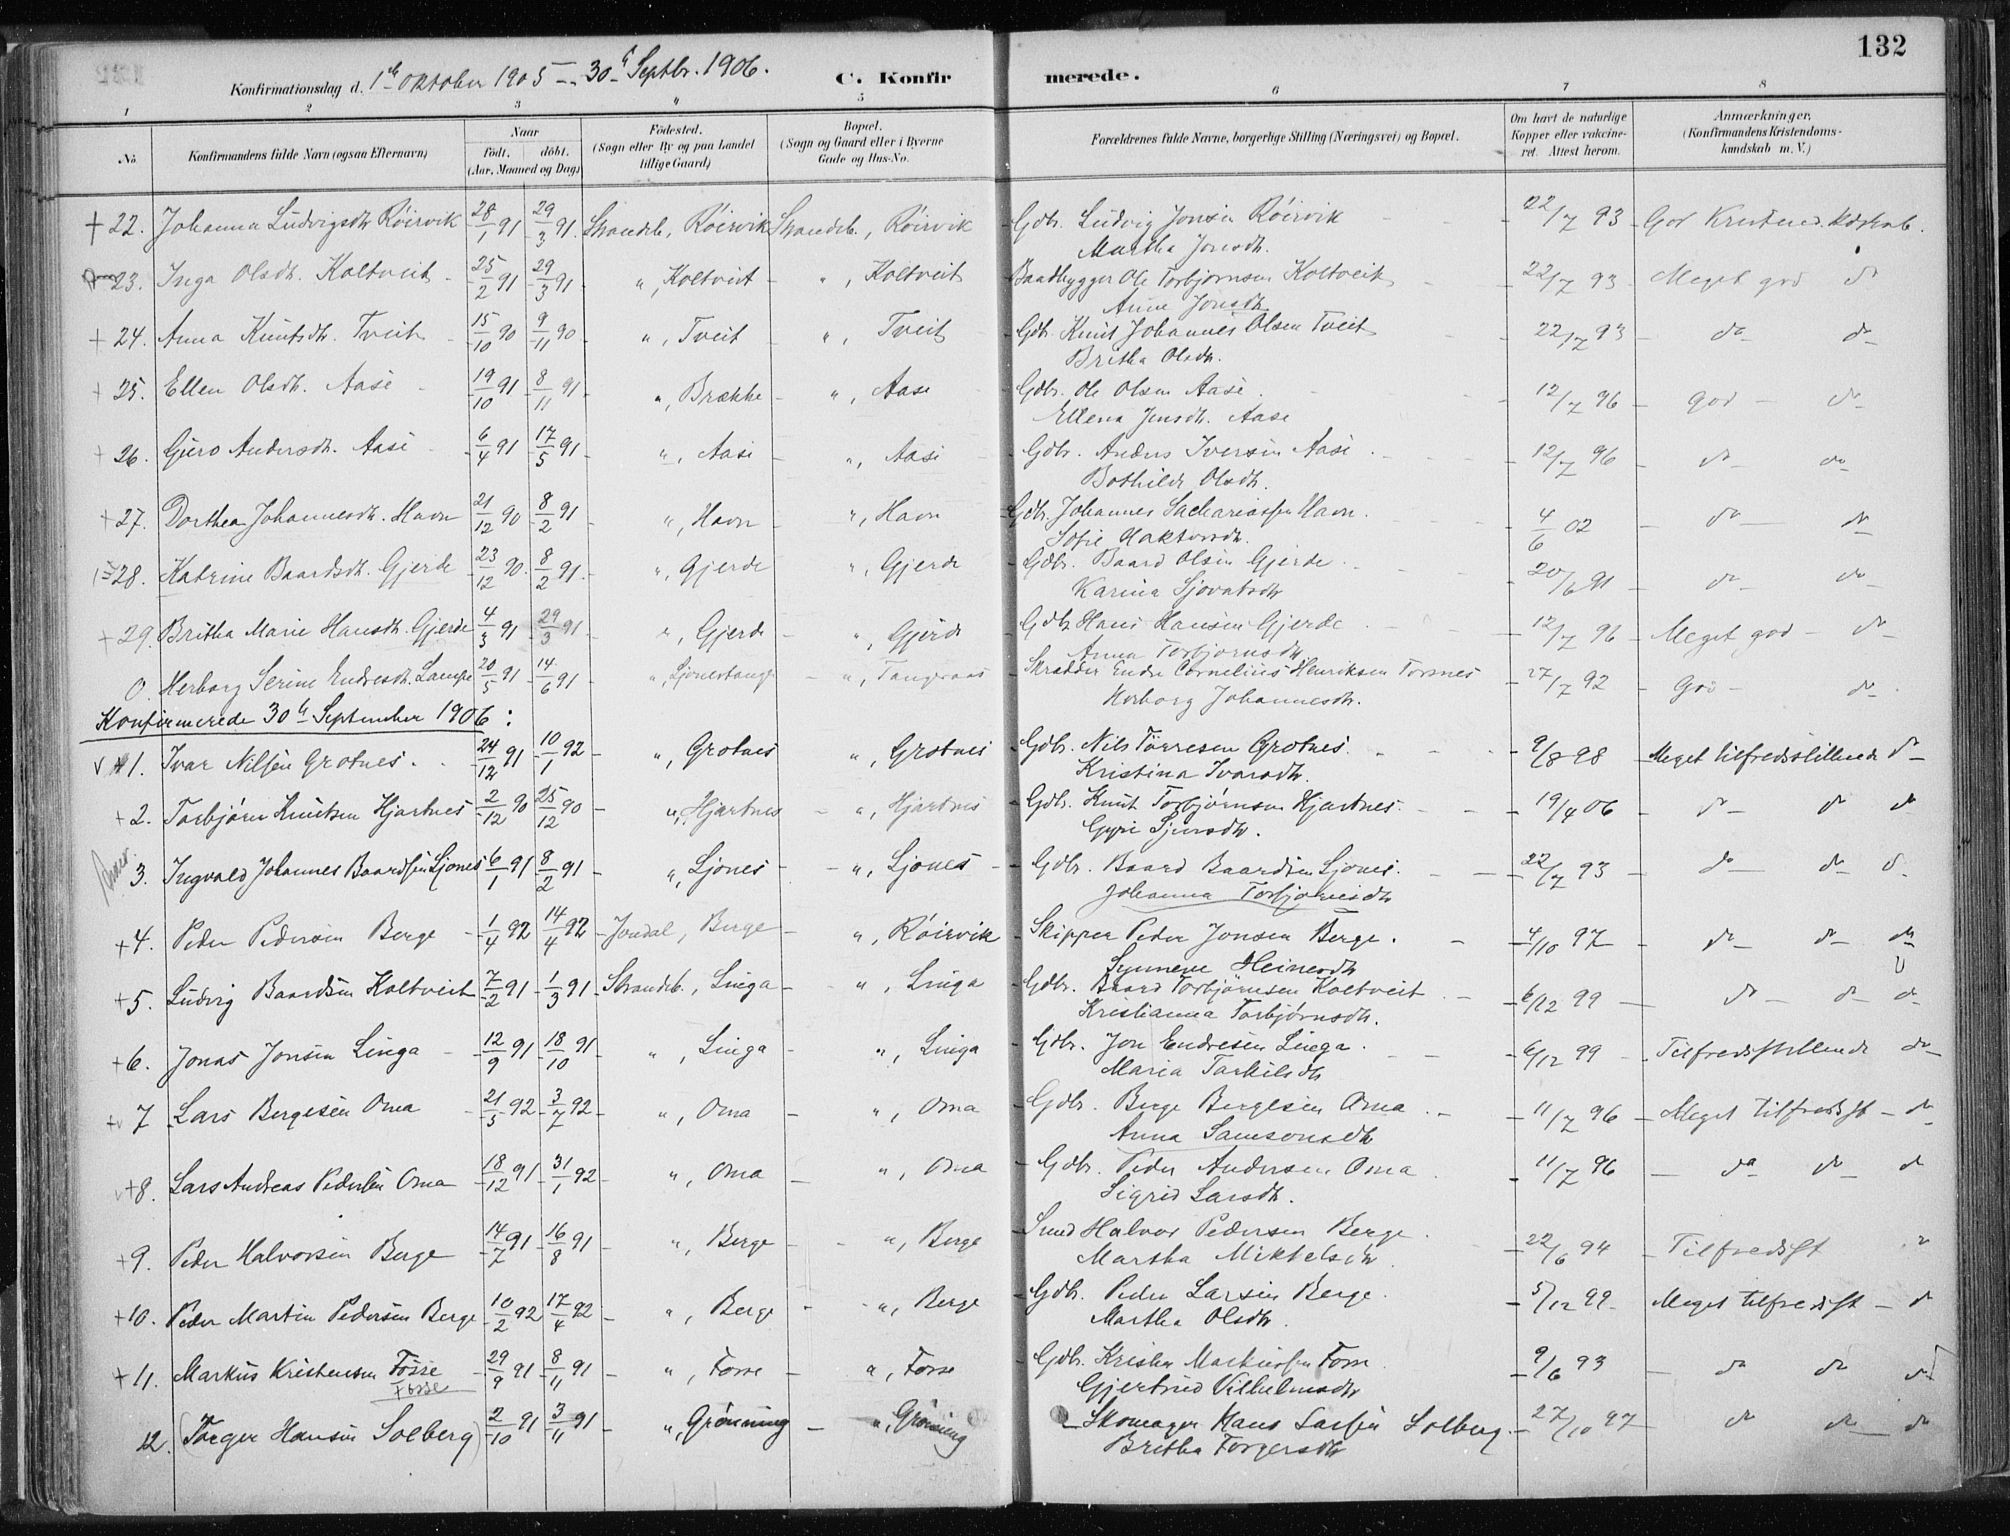 132
Konfirmationsdag d. 1ste Oktober 1905 — 30te Septbr. 1906.
C. Konfirmerede.
1 2 3 4 5 6 7 8
No. Konfirmandens fulde Navn (ogsaa Efternavn) Naar født, døbt. (Aar, Maaned og Dag) Fødested. (Sogn eller By og paa Landet tillige Gaard) Bopæl. (Sogn og Gaard eller i Byerne Gade og Hus-No. Forældrenes fulde Navne, borgerlige Stilling (Næringsvei) og Bopæl. Om havt de naturlige Kopper eller vakcineret. Attest herom. Anmærkninger, (Konfirmandens Kristendomskundskab m. V.)
+ 22. Johanna Ludvigsdtr Röirvik 28/1 91 29/3 91 Strandeb., Röirvik Strandeb., Röirvik Gdbr. Ludvig Jonsen Röirvik 22/7 93 God Kristend. kdskab.
Martha Jonsdtr.
23. Inga Olsdtr. Koltveit 25/2 91 29/3 91 ", Koltveit ", Koltveit Baadbygger Ole Torbjörnsen Koltveit 22/7 93 Meget god do
Anne Jonsdtr
+ 24. Anna Knutsdtr. Tveit 15/10 90 9/11 90 ", Tveit ", Tveit Gdbr. Knut Johannes Olsen Tveit 22/7 93 do do
Britha Olsdtr.
+ 25. Ellen Olsdtr. Aase 19/10 91 8/11 91 ", Brække ", Aase Gdbr. Ole Olsen Aase 12/7 96 God do
Ellena Jensdtr. Aase
+ 26. Guro Andersdtr. Aase 6/4 91 17/5 91 ", Aase ", Aase Gdbr. Anders Iversen Aase 12/7 96 do do
Bothilde Olsdtr.
+ 27. Dorthea Johannesdtr. Havn 21/12 90 8/2 91 ", Havn ", Havn Gdbr. Johannes Sachariassen Havn 4/6 02 do do
Sofie Haktorsdtr.
28. Katrine Baardsdtr. Gjerde 23/12 90 8/2 91 ", Gjerde ", Gjerde Gdbr. Baard Olsen Gjerde 20/6 91 do do
Karina Sjovatsdtr
+ 29. Britha Marie Hansdtr. Gjerde 4/3 91 29/3 91 ", Gjerde ", Gjerde Gdbr Hans Hansen Gjerde 12/7 96 Meget god do
Anna Torbjornsdtr
0. Herborg Serine Endresdtr. Lampe 20/5 91 14/6 91 ", Ljonestangen ", Tangeraas Skrædder Endre Cornelius Henriksen Torsnes 27/7 92 God do
Herborg Johannesdtr.
Konfirmerede 30te September 1906:
1. Ivar Nilsen Grotnes. 24/12 91 10/1 92 ", Grotnes ", Grotnes Gdbr. Nils Törresen Grotnes 9/8 98 Meget tilfredsstillende do
Kristina Ivarsdtr.
+ 2. Torbjörn Knutsen Hjartnes 2/12 90 25/12 90 ", Hjartnes ", Hjartnes Gdbr. Knut Torbjørnsen Hjartnes 19/4 06 do do do
Gyri Sjursdtr.
3. Ingvald Johannes Baardsen Ljones 6/1 91 8/2 91 ", Ljones ", Ljones Gdbr. Baard Baardsen Ljones 22/7 93 do do do
Johanna Torbjørnsdtr
+ 4. Peder Pedersen Berge 1/4 92 14/4 92 Jondal, Berge ", Röirvik Skipper Peder Jonsen Berge. 4/10 97 do do do
Synneve Heinesdtr
+ 5. Ludvig Baardsen Koltveit 7/2 91 1/3 91 Strandeb., Linga ", Linga Gdbr. Baard Torbjørnsen Koltveit 6/12 99 do do do
Kristianna Torbjørnsdtr.
+ 6. Jonas Jonsen Linga 12/9 91 18/10 91 ", Linga ", Linga Gdbr. Jon Endresen Linga 6/12 99 Tilfredsstillende do
Maria Torkilsdtr
7 Lars Bergesen Oma 21/5 92 3/7 92 ", Oma ", Oma Gdbr. Berge Bergesen Oma 11/7 96 Meget tilfredsst do
Anna Samsonsdtr
+ 8. Lars Andreas Pedersen Oma 18/12 91 31/1 92 ", Oma ", Oma Gdbr. Peder Andersen Oma 11/7 96 do do do
Sigrid Larsdtr.
+ 9. Peder Halvorsen Berge 14/7 91 16/8 91 ", Berge ", Berge Smed Halvor Pedersen Berge 22/6 94 Tilfredsst do
Martha Mikkelsdtr
+ 10. Peder Martin Pedersen Berge 10/2 92 17/4 92 ", Berge ", Berge Gdbr. Peder Larsen Berge 5/12 99 Meget tilfredsst do
Martha Olsdtr.
+ 11. Markus Kristensen Fosse 29/9 91 8/11 91 ", Fosse ", Fosse Gdbr. Kristen Markussen Fosse 9/6 93 do do do
Fosse Gjertrud Vilhelmsdtr
12. (Torger Hansen Solberg) 2/10 91 3/11 91 ", Grönning ", Grönning Skomager Hans Larsen Solberg 27/10 97 do do do
Britha Torgersdtr